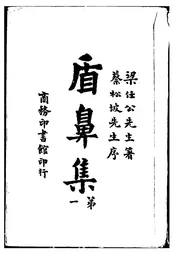 梁任公先生著
蔡松坡先生序
盾鼻集
第一
商務印書館印行